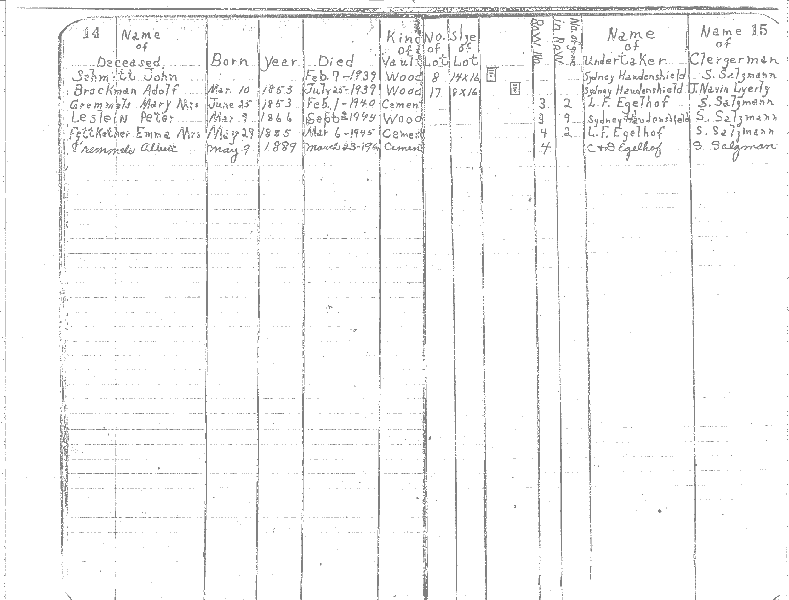 14 Name of Deceased Born Year Died Kind of Vault No. of Lot Size of Lot Row No. No. of grave in Row Name of Undertaker Name of Clergerman 15
Schmitt John Feb. 7-1939 Wood 8 14x16 Sydney S. Salzmann
Brockman Adolf Mar. 10 1853 July 25-1939 Wood 17 8x16 Sydney J. Navin Lyerly
Gremmels Mary Mrs June 25 1853 Feb. 1-1940 Cement 3 2 L. F. Egelhof S. Salzmann
Leslein Peter Mar 9 1866 Sept 2 1944 Wood 3 9 Sydney S. Salzmann
Pottkotter Emma Mrs May 29 1885 Mar 6-1945 Cement 4 2 L. F. Egelhof S. Salzmann
Albert May 9 1889 March 23-194 Cement 4 Egelhof S. Salzman